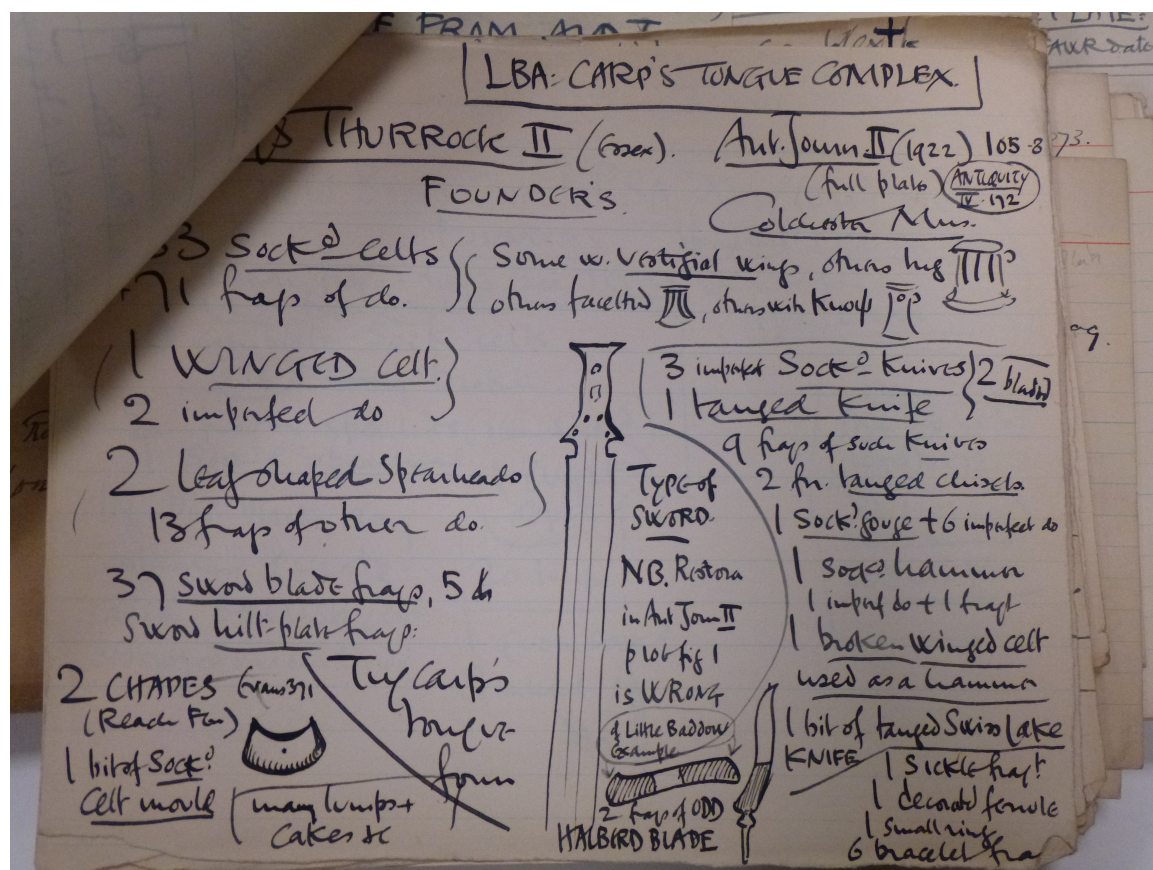 LBA: CARP'S TONGUE COMPLEX.
THURROCK II (Essex). Ant. Journ. II (1922) 105-8
(full plate) ANTIQUITY IV. 192
FOUNDER'S.
Colchester Mus.
33 Sockd celts
71 frags of do.
Some w. vestigial wings, others
others facetted, others with knobs
1 WINGED Celt.
2 imperfect do
2 Leaf shaped Spearheads
13 frags of other do.
37 sword blade frags, 5
sword hilt-plate frags:
2 CHAPES Evans 371
(Reach Fen)
1 bit of Sockd
Celt mould
many lumps +
cakes &c
Tru carp's
tongue
form
TYPE of
SWORD.
NB. Restorn
in Ant Journ II
plate fig 1
is WRONG
cf Little Baddow
Example
2 frags of ODD
HALBERD BLADE
3 imperfect Sockd Knives
1 tanged Knife
2 blades
9 frags of such Knives
2 fr. tanged chisels.
1 Sockd gouge + 6 imperfect do
1 Sockd hammer
1 imperf do + 1 fragt
1 broken winged celt
used as a hammer
1 bit of tanged Swiss Lake
KNIFE
1 Sickle fragt
1 decorated ferrule
1 small ring
6 bracelet fra